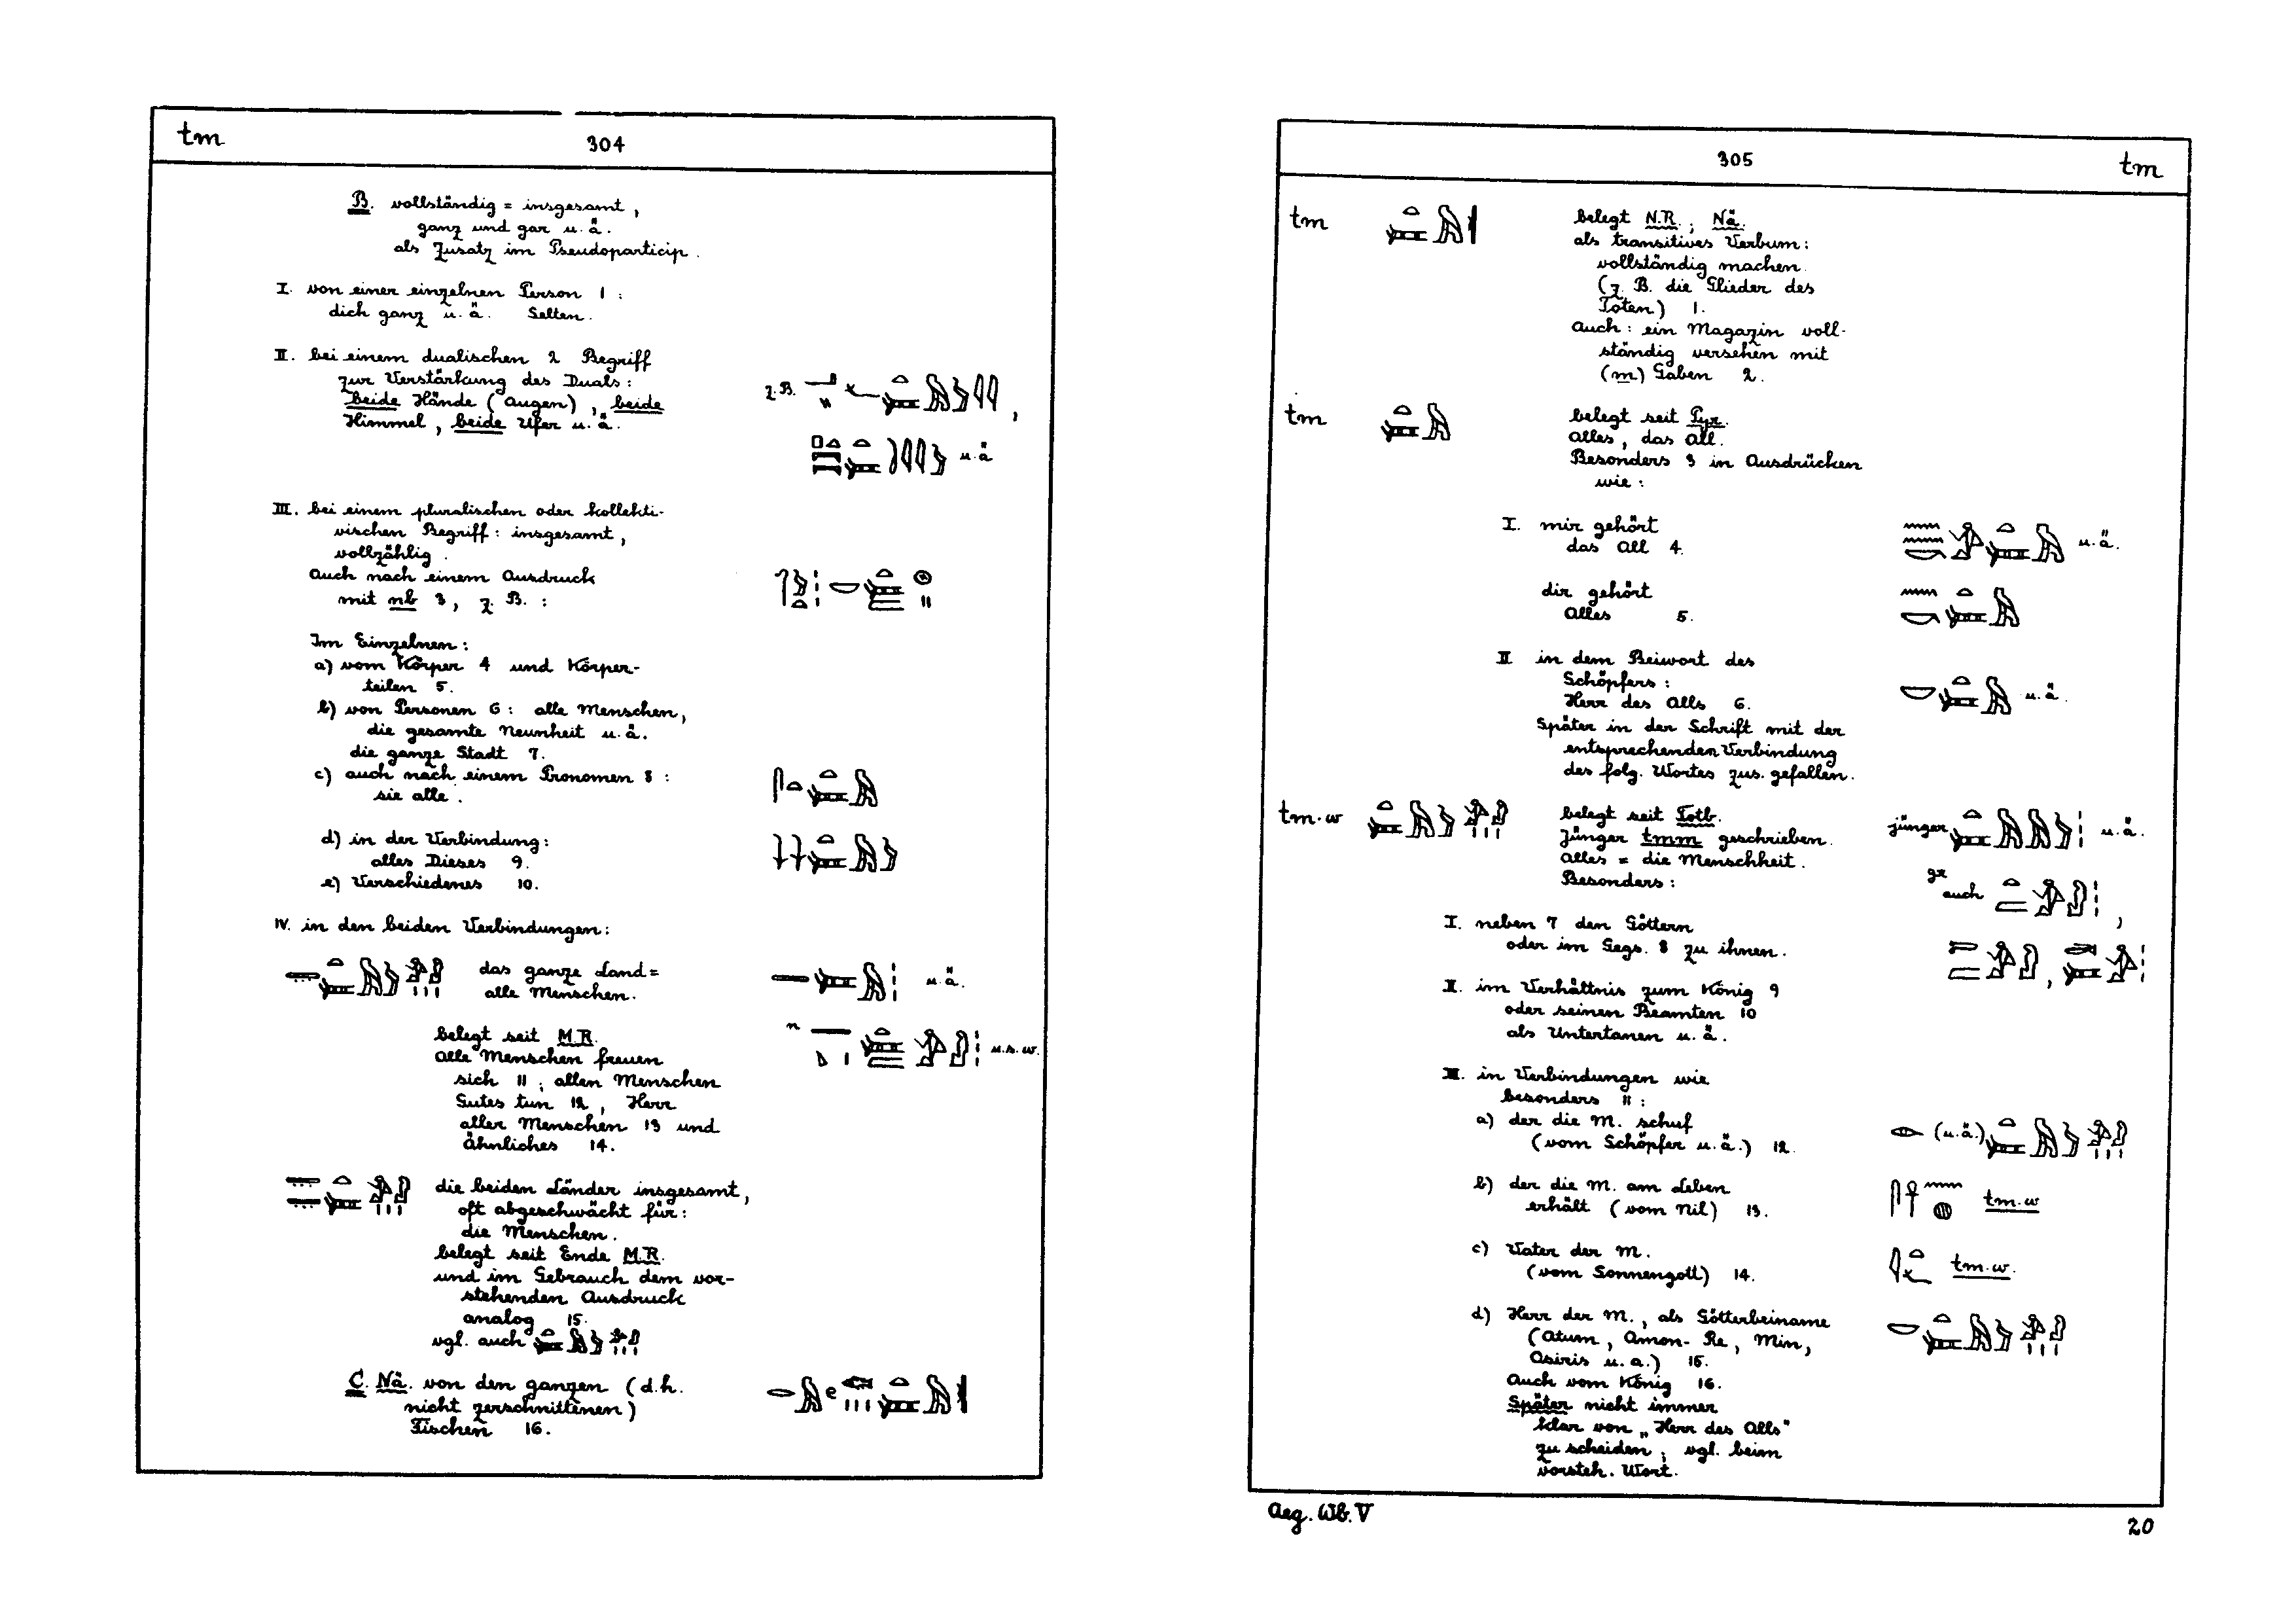 tm 304
B. vollständig = insgesamt,
ganz und gar u. ä.
als Zusatz im Pseudoparticip.
I. von einer einzelnen Person 1:
dich ganz u. ä. Selten.
II. bei einem dualischen 2 Begriff
zur Verstärkung des Duals:
beide Hände (Augen), beide
Himmel, beide Ufer u. ä.
z. B.
u. ä
III. bei einem pluralischen oder kollekti-
vischen Begriff: insgesamt,
vollzählig.
Auch nach einem Ausdruck
mit nb 3, z. B.:
Im Einzelnen:
a) vom Körper 4 und Körper-
teilen 5.
b) von Personen 6: alle Menschen,
die gesamte Neunheit u. ä.
die ganze Stadt 7.
c) auch nach einem Pronomen 8:
sie alle.
d) in der Verbindung:
alles Dieses 9.
e) Verschiedenes 10.
IV. in den beiden Verbindungen:
das ganze Land =
alle Menschen.
u. ä.
belegt seit M.R.
Alle Menschen freuen
sich 11; allen Menschen
Gutes tun 12, Herr
aller Menschen 13 und
Ähnliches 14.
u. s. w.
die beiden Länder insgesamt,
oft abgeschwächt für:
die Menschen.
belegt seit Ende M.R.
und im Gebrauch dem vor-
stehenden Ausdruck
analog 15.
vgl. auch
C. Nä. von den ganzen (d. h.
nicht zerschnittenen)
Fischen 16.
305 tm
tm belegt N.R.; Nä.
als transitives Verbum:
vollständig machen.
(z. B. die Glieder des
Toten) 1.
Auch: ein Magazin voll-
ständig versehen mit
(m) Gaben 2.
tm belegt seit Pyr.
Alles, das All.
Besonders 3 in Ausdrücken
wie:
I. mir gehört
das All 4.
u. ä.
dir gehört
Alles 5.
II in dem Beiwort des
Schöpfers:
Herr des Alls 6.
u. ä.
Später in der Schrift mit der
entsprechenden Verbindung
des folg. Wortes zus. gefallen.
tm.w belegt seit Totb.
Jünger tmm geschrieben.
Alles = die Menschheit.
Besonders:
jünger u. ä.
gr auch
I. neben 7 den Göttern
oder im Gegs. 8 zu ihnen.
II. im Verhältnis zum König 9
oder seinen Beamten 10
als Untertanen u. ä.
III. in Verbindungen wie
besonders 11:
a) der die M. schuf
(vom Schöpfer u. ä.) 12.
(u. ä.)
b) der die M. am Leben
erhält (vom Nil) 13.
tm.w
c) Vater der M.
(vom Sonnengott) 14.
tm.w.
d) Herr der M., als Götterbeiname
(Atum, Amon-Re, Min,
Osiris u. a.) 15.
Auch vom König 16.
Später nicht immer
klar von „Herr des Alls"
zu scheiden; vgl. beim
vorsteh. Wort.
Aeg. Wb. V 20